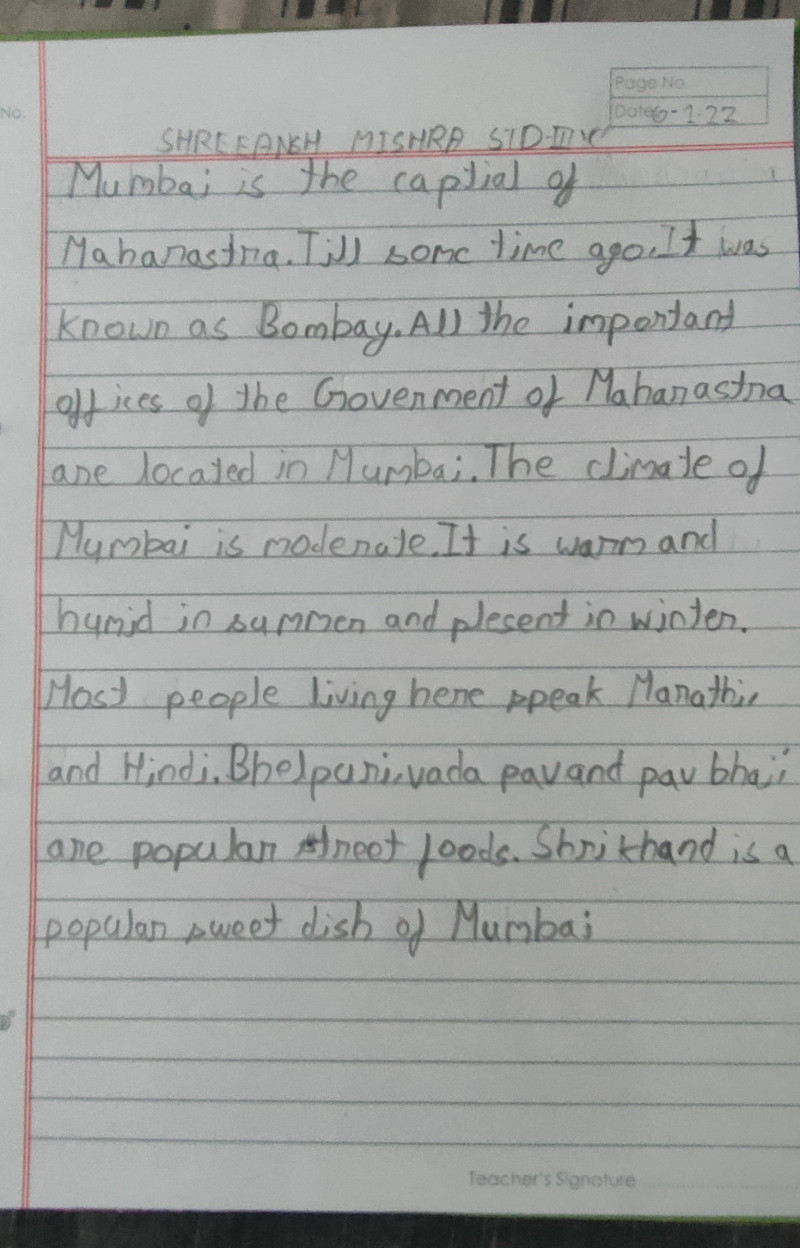 No.
Page No.
Date 6-1-22
SHREEANSH MISHRA STD-III
Mumbai is the captial of
Maharastra. Till some time ago. It was
known as Bombay. All the important
offices of the Goverment of Maharastra
are located in Mumbai. The climate of
Mumbai is moderate. It is warm and
humid in summer and plesent in winter.
Most people living here speak Marathi,
and Hindi. Bhelpuri, vada pav and pav bhaji
are popular street foods. Shrikhand is a
popular sweet dish of Mumbai
Teacher's Signature